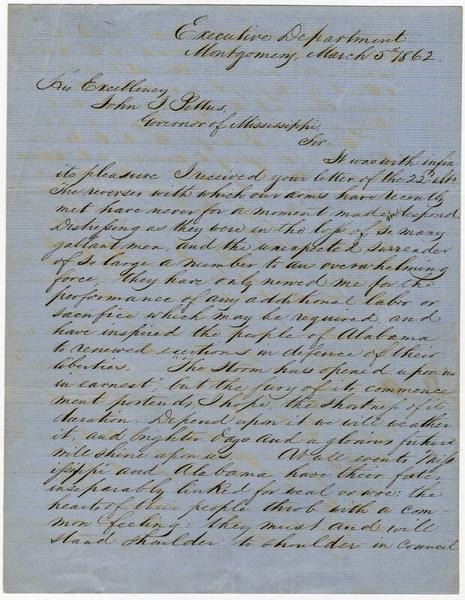 Executive Department
Montgomery, March 5th 1862.
His Excellency
John J Pettus,
Governor of Mississippi,
Sir
It was with infin
ite pleasure I received your letter of the 22d ulto
The reverses with which our arms have recently
met have never for a moment made me despond.
Distressing as they were in the loss of so many
gallant men, and the unexpected surrender
of so large a number to an overwhelming
force, they have only nerved me for the
performance of any additional labor or
sacrifice which may be required, and
have inspired the people of Alabama
to renewed exertions in defence of their
liberties. "The storm has opened upon us
in earnest," but the fury of its commence
ment portends, I hope, the shortness of its
duration. Depend upon it we will weather
it, and brighter days and a glorious future
will shine upon us. At all events Miss
issippi and Alabama have their fates
inseparably linked for weal or woe: the
hearts of their people throb with a com-
mon feeling: they must and will
stand shoulder to shoulder in council